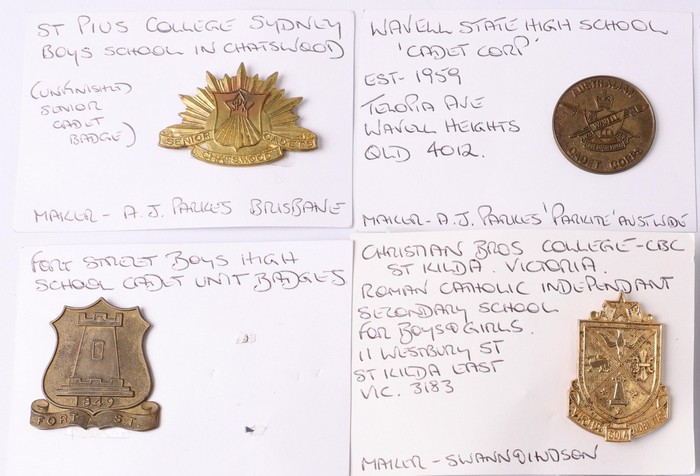 ST PIUS COLLEGE SYDNEY
BOYS SCHOOL IN CHATSWOOD
(UNFINISHED
SENIOR
CADET
BADGE)
SENIOR CADETS
CHATSWOOD
MAKER - A.J. PARKES BRISBANE
WAVELL STATE HIGH SCHOOL
'CADET CORP'
EST- 1959
TELOPIA AVE
WAVELL HEIGHTS
QLD 4012.
AUSTRALIAN
WAVELL
CADET CORPS
MAKER - A.J. PARKES 'PARKITE' AUSTWIDE
FORT STREET BOYS HIGH
SCHOOL CADET UNIT BADGES
1849
FORT ST.
CHRISTIAN BROS COLLEGE - CBC
ST KILDA. VICTORIA.
ROMAN CATHOLIC INDEPENDANT
SECONDARY SCHOOL
FOR BOYS & GIRLS.
11 WESTBURY ST
ST KILDA EAST
VIC. 3183
MAKER - SWANN & HUDSON